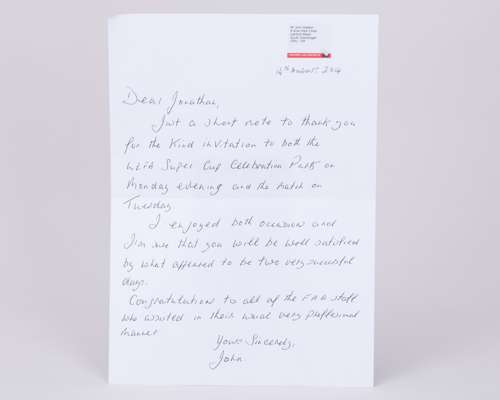 14th August, 2014
Dear Jonathan,
Just a short note to thank you
for the kind invitation to both the
UEFA Super Cup Celebration Party on
Monday evening and the match on
Tuesday.
I enjoyed both occasion and
I'm sure that you will be well satisfied
by what appeared to be two very successful
days.
Congratulations to all of the FAW staff
who assisted in their usual very professional
manner
Yours Sincerely,
John